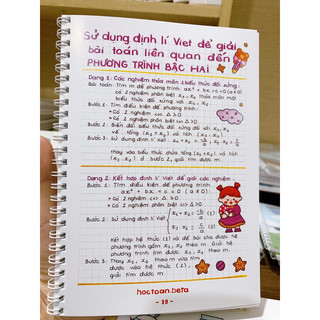 Sử dụng định lí Viet để giải
bài toán liên quan đến
PHƯƠNG TRÌNH BẬC HAI
Dạng 1: Các nghiệm thỏa mãn 1 biểu thức đối xứng.
Bài toán: Tìm m để phương trình ax² + bx + c = 0 (a ≠ 0)
có 2 nghiệm phân biệt x₁, x₂ thỏa mãn một
biểu thức đối xứng với x₁, x₂.
Bước 1: Tìm điều kiện để phương trình:
+ Có 2 nghiệm ⇔ Δ ≥ 0
+ Có 2 nghiệm phân biệt ⇔ Δ > 0
Bước 2: Biến đổi biểu thức đối xứng đối với x₁, x₂
về tổng (x₁ + x₂) và tích (x₁ . x₂)
Bước 3: Sử dụng định lí Viet, ta có: x₁ + x₂ = -b/a; x₁x₂ = c/a
thay vào biểu thức chứa tổng (x₁ + x₂), và tích
(x₁ . x₂) ở bước 2, giải tìm được m.
Dạng 2: Kết hợp định lí Viet để giải các nghiệm.
Bước 1: Tìm điều kiện để phương trình:
ax² + bx + c = 0 (a ≠ 0)
+ Có 2 nghiệm ⇔ Δ ≥ 0
+ Có 2 nghiệm phân biệt ⇔ Δ > 0
Bước 2: Sử dụng định lí Viet { x₁ + x₂ = -b/a (1)
x₁ . x₂ = c/a (2)
Kết hợp hệ thức (1) và đề bài cho được hệ
phương trình gồm x₁, x₂ theo m. Giải hệ
phương trình tìm được x₁, x₂ theo m.
Bước 3: Thay x₁, x₂ theo m vừa tìm
được vào hệ thức (2),
giải tìm m.
hoctoan.beta
- 19 -